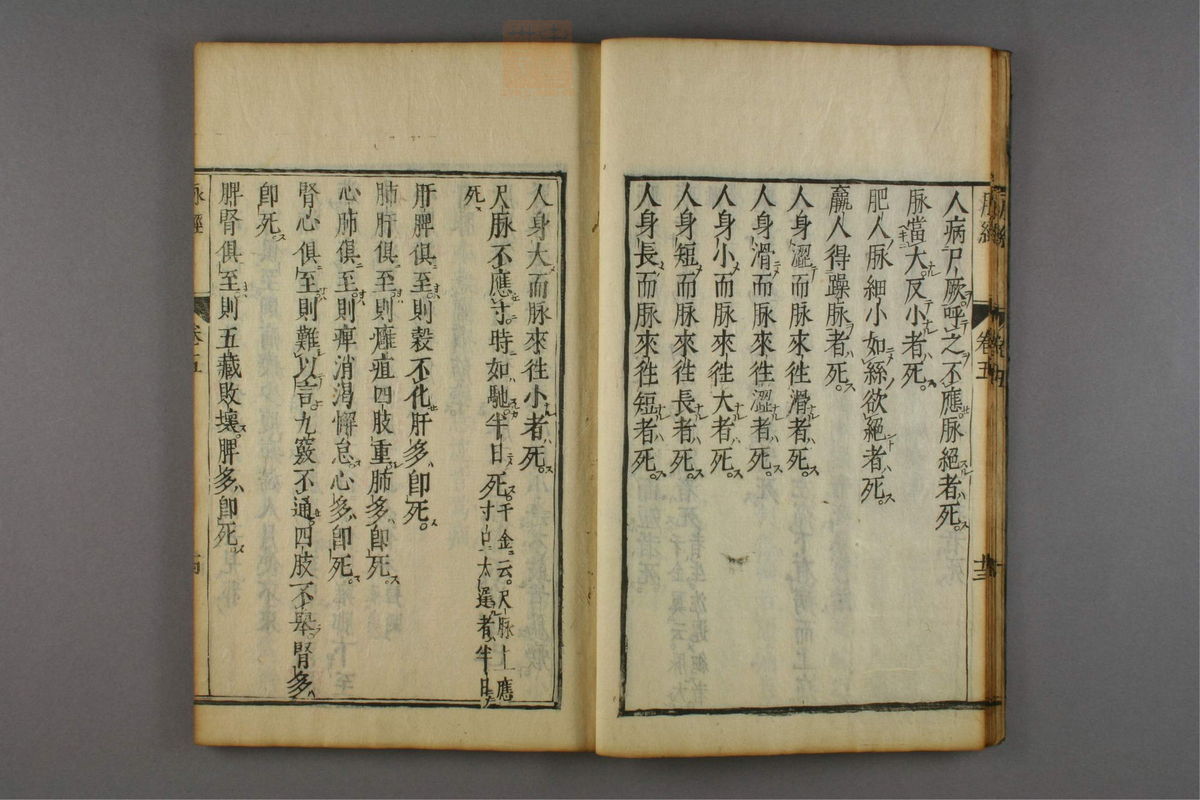 人病尺厥呼之不應脉絕者死
脉當大反小者死
肥人脉細小如絲欲絕者死
羸人得躁脉者死
人身澀而脉來徃滑者死
人身滑而脉來徃澀者死
人身小而脉來徃大者死
人身短而脉來徃長者死
人身長而脉來徃短者死
人身大而脉來徃小者死
尺脉不應寸時如馳半日死千金云尺脉上應
寸口太遲者半日
死
肝脾俱至則穀不化肝多卽死
肺肝俱至則癰疽四肢重肺多卽死
心肺俱至則痺消渴懈怠心多卽死
腎心俱至則難以言九竅不通四肢不舉腎多
卽死
脾腎俱至則五藏敗壞脾多卽死